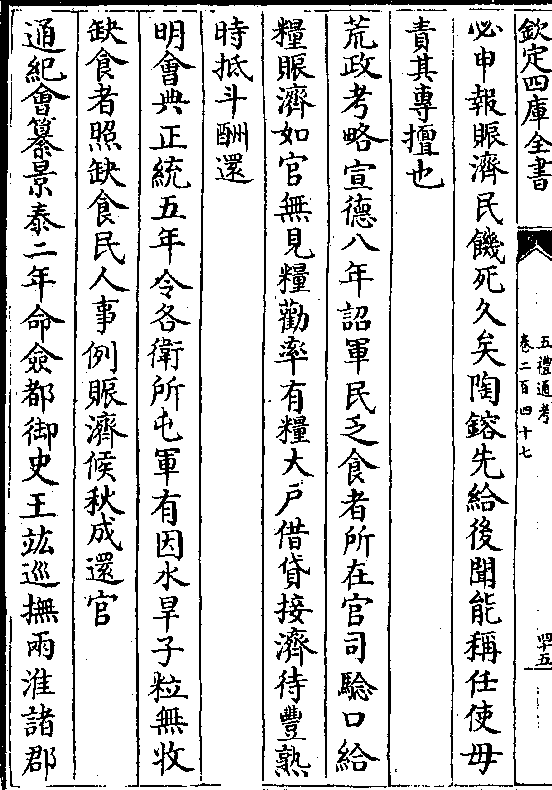 欽定四庫全書
五禮通考
卷二百四十七
四十五
必申報賑濟民饑死久矣陶鎔先給後聞能稱任使毋
責其專擅也
荒政考略宣德八年詔軍民乏食者所在官司驗口給
糧賑濟如官無見糧勸率有糧大戶借貸接濟待豐熟
時抵斗酬還
明會典正統五年令各衛所屯軍有因水旱子粒無收
缺食者照缺食民人事例賑濟候秋成還官
通紀會纂景泰二年命僉都御史王竑巡撫兩淮諸郡